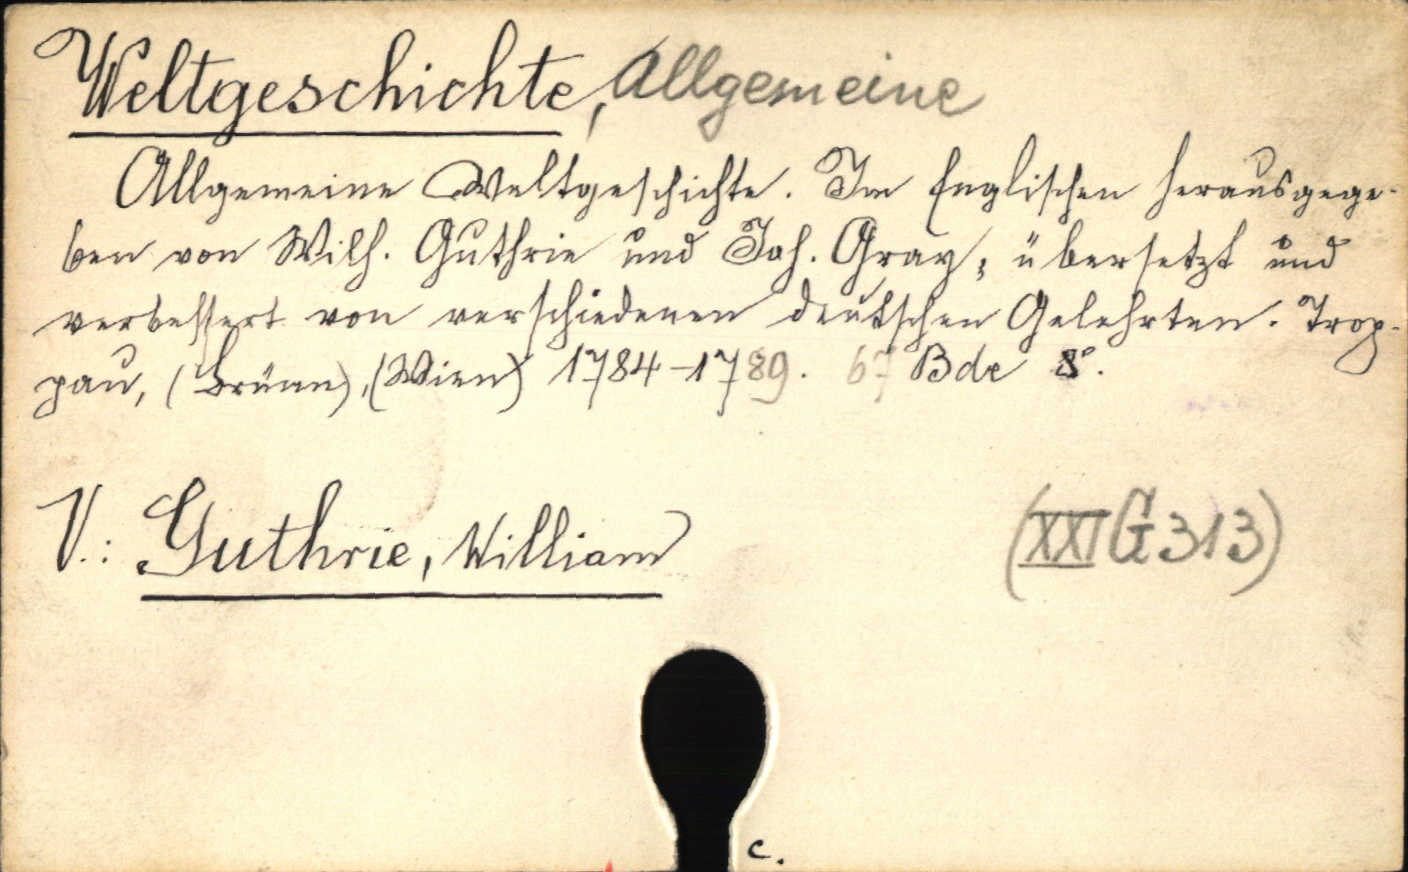 Weltgeschichte, Allgemeine
Allgemeine Weltgeschichte. Im Englischen herausgege-
ben von Wilh. Guthrie und Joh. Gray, übersetzt und
verbessert von verschiedenen deutschen Gelehrten. Trop-
pau, (Brünn), (Wien) 1784-1789. 67 Bde 8°.
V.: Guthrie, William
(XXI G 313)
c.